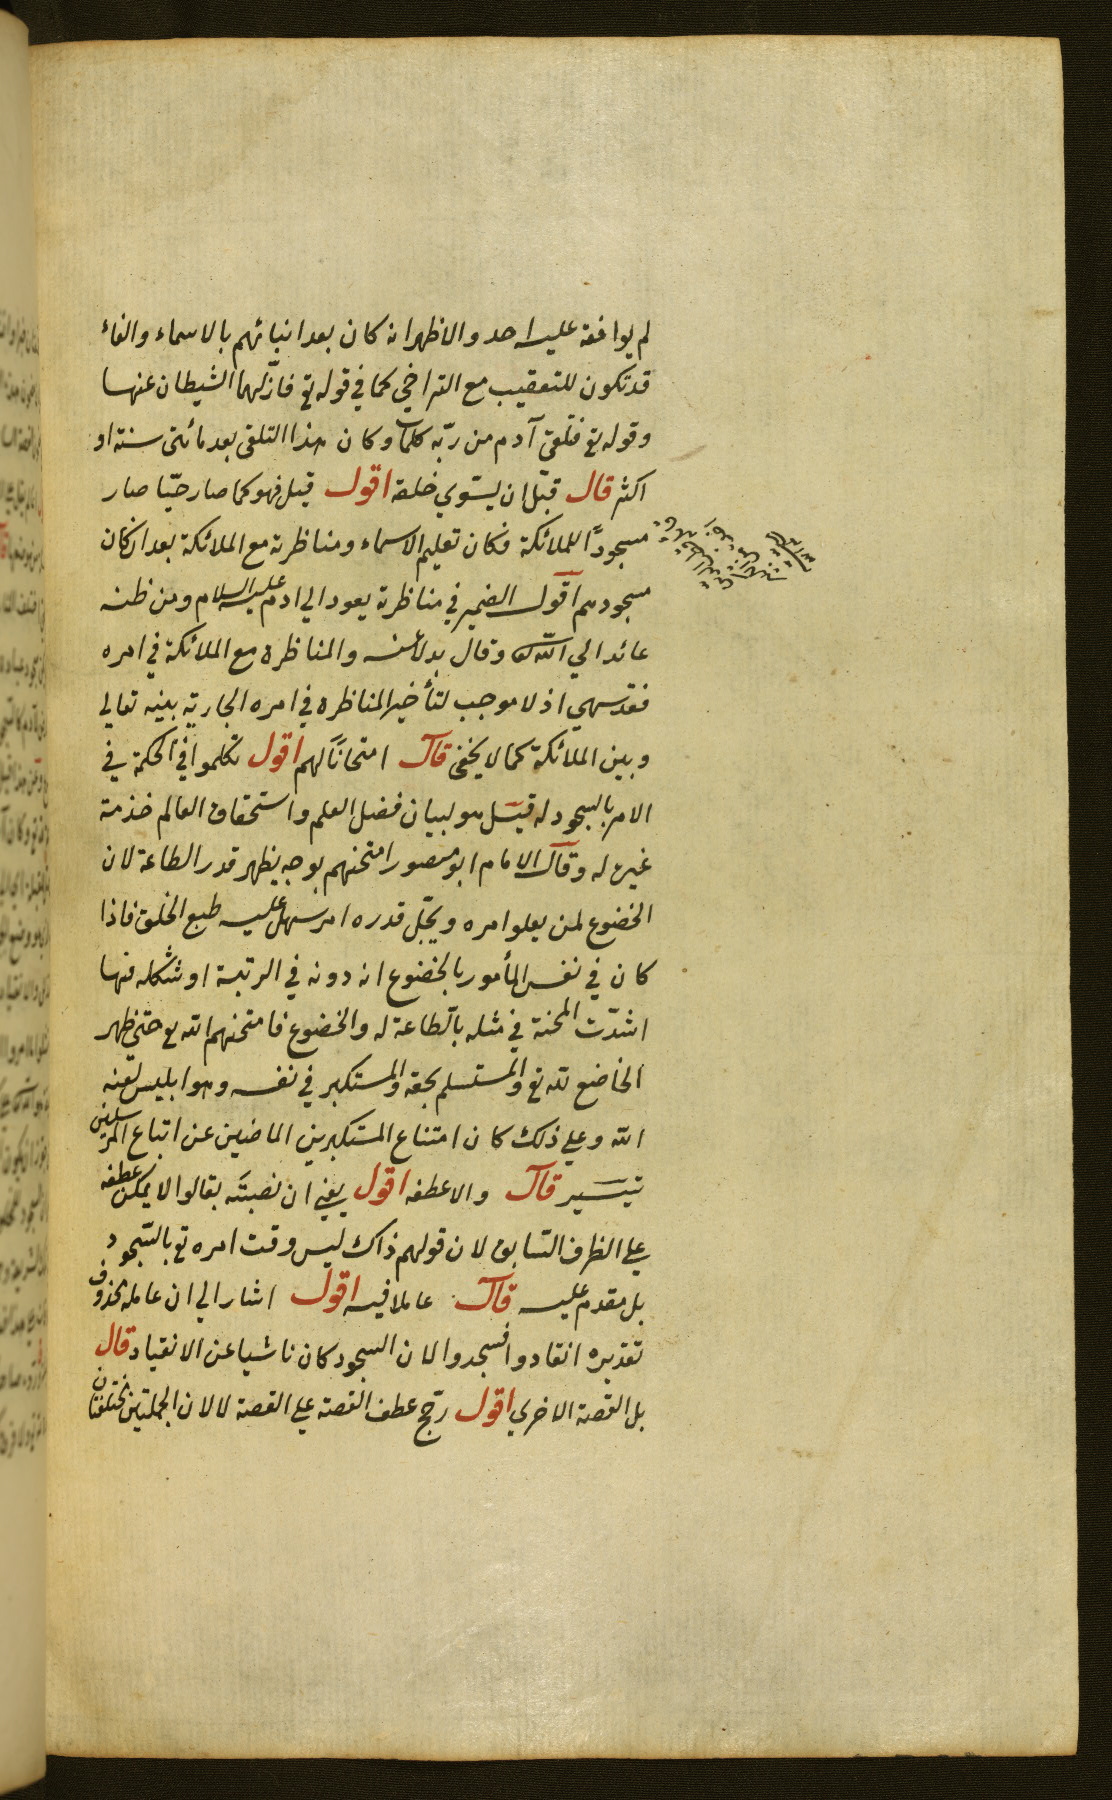 لم يوافقه عليه احد والاظهر انه كان بعد انبائهم بالاسماء والفاء
قد تكون للتعقيب مع التراخي كما في قوله تع فازّلهما الشيطان عنها
وقوله تع فتلقى آدم من ربّه كلمات وكان هذا التلقى بعد مائتى سنة او
اكثر قال قبل ان يسوّي خلقه اقول قيل فهو كما صار حيّا صار
مسجودًا للملائكة فكان تعليم الاسماء ومناظرته مع الملائكة بعد ان كان
مسجودهم اقول الضمير في مناظرته يعود الي ادم عليه السلام ومن ظنه
عائدا الي الله وقال بدلا عنه والمناظرة مع الملائكة في امره
فقد سهي اذ لا موجب لتأخير المناظرة في امره الجارية بينه تعالي
وبين الملائكة كما لا يخفى قال امتحانًا لهم اقول تكلموا في الحكمة في
الامر بالسجود له قيل هو لبيان فضل العلم واستحقاق العالم خدمة
غيره له وقال الامام ابو منصور امتحنهم بوجه يظهر قدر الطاعة لان
الخضوع لمن يعلو امره ويجلّ قدره امر سهل عليه طبع الخلق فاذا
كان في نفس المأمور بالخضوع انه دونه في الرتبة او شكله فيها
اشتدّت المحنة في مثله بالطاعة له والخضوع فامتحنهم الله تع حتى ظهر
الخاضع لله تع والمستسلم بحقه والمستكبر في نفسه وهو ابليس لعنه
الله وعلي ذلك كان امتناع المستكبرين الماضين عن اتباع المرسلين
تيسير قال والا عطفه اقول يعني ان نصبته بقالوا لا يمكن عطفه
علي الظرف السّابق لان قولهم ذاك ليس وقت امره تع بالسّجود
بل مقدم عليه قال عاملا فيه اقول اشار الي ان عامله محذوف
تقديره انقادوا فسجدوا لان السجود كان ناشيا عن الانقياد قال
بل القصة الاخري اقول رجّح عطف القصة علي القصة لا لان الجملتين مختلفتان